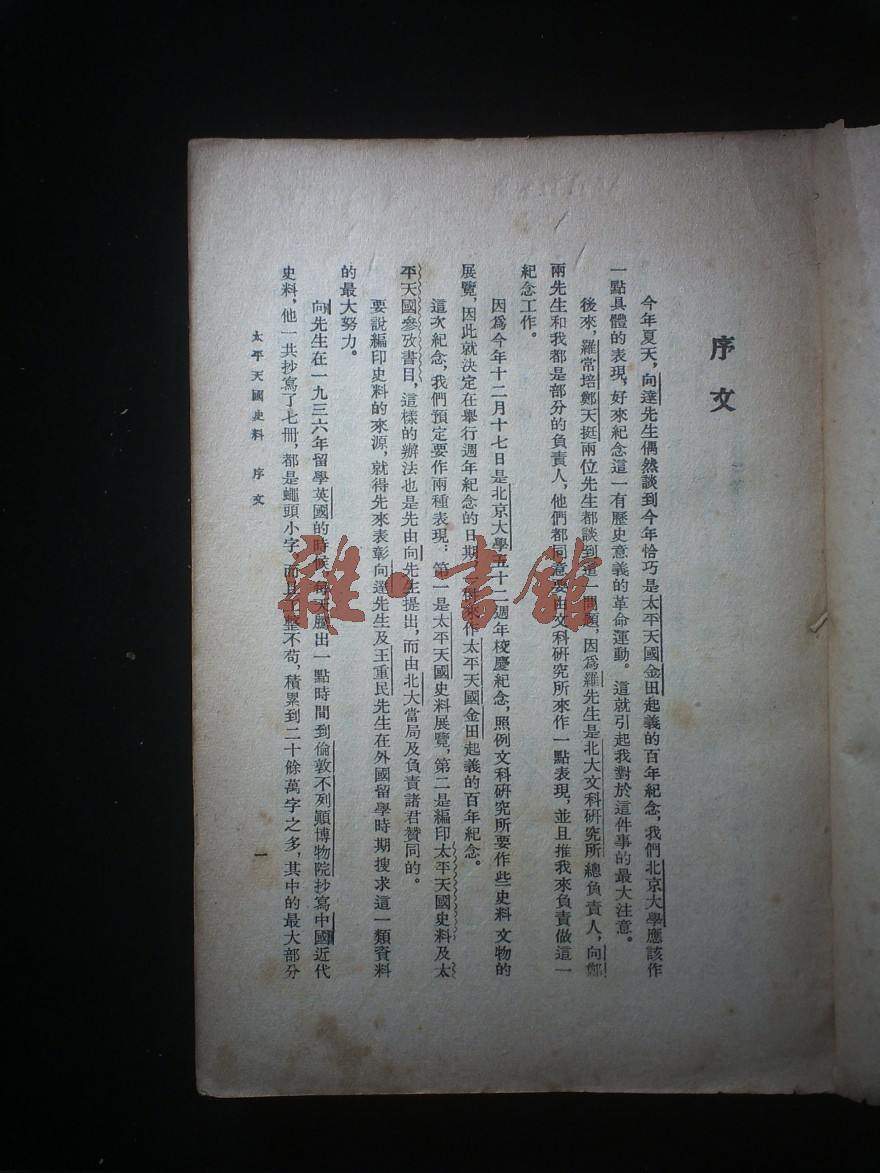 序文
今年夏天，向達先生偶然談到今年恰巧是太平天國金田起義的百年紀念，我們北京大學應該作
一點具體的表現，好來紀念這一有歷史意義的革命運動。這就引起我對於這件事的最大注意。
後來，羅常培鄭天挺兩位先生都談到這一問題，因爲羅先生是北大文科研究所總負責人，向鄭
兩先生和我都是部分的負責人，他們都同意要由文科研究所來作一點表現，並且推我來負責做這一
紀念工作。
因爲今年十二月十七日是北京大學五十二週年校慶紀念，照例文科研究所要作些史料文物的
展覽，因此就決定在舉行週年紀念的日期一併來作太平天國金田起義的百年紀念。
這次紀念，我們預定要作兩種表現：第一是太平天國史料展覽，第二是編印太平天國史料及太
平天國參攷書目，這樣的辦法也是先由向先生提出，而由北大當局及負責諸君贊同的。
要說編印史料的來源，就得先來表彰向達先生及王重民先生在外國留學時期搜求這一類資料
的最大努力。
向先生在一九三六年留學英國的時候，每天騰出一點時間到倫敦不列顛博物院抄寫中國近代
史料，他一共抄寫了七冊，都是蠅頭小字，而且工整不苟，積累到二十餘萬字之多，其中的最大部分
太平天國史料 序文
一
雜·書館